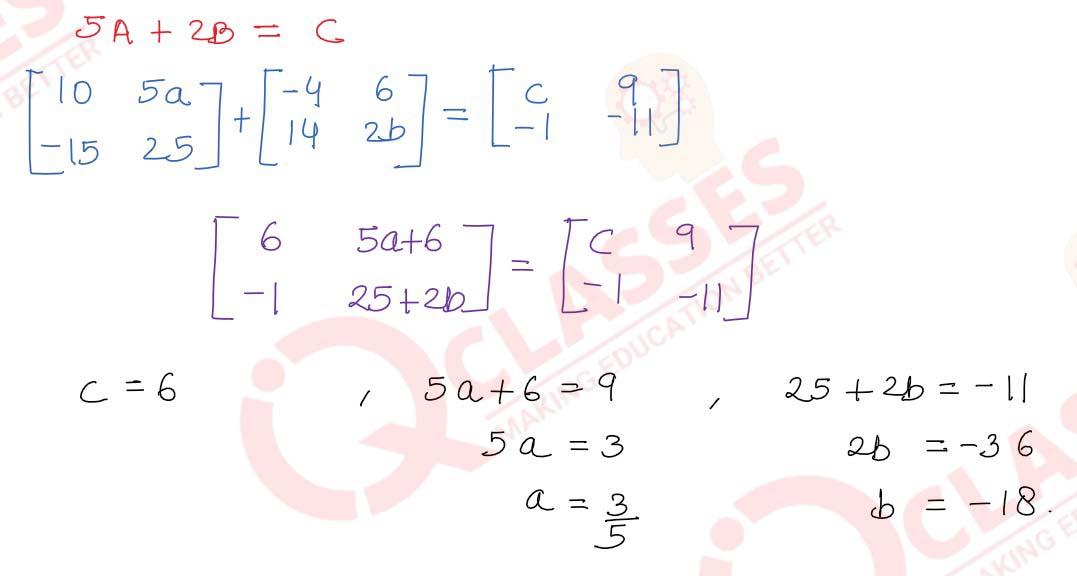 5A + 2B = C
[10 5a
-15 25] + [-4 6
14 2b] = [c 9
-1 -11]
[6 5a+6
-1 25+2b] = [c 9
-1 -11]
c = 6 , 5a+6 = 9 , 25+2b = -11
5a = 3 2b = -36
a = 3/5 b = -18.
CLASSES
MAKING EDUCATION BETTER